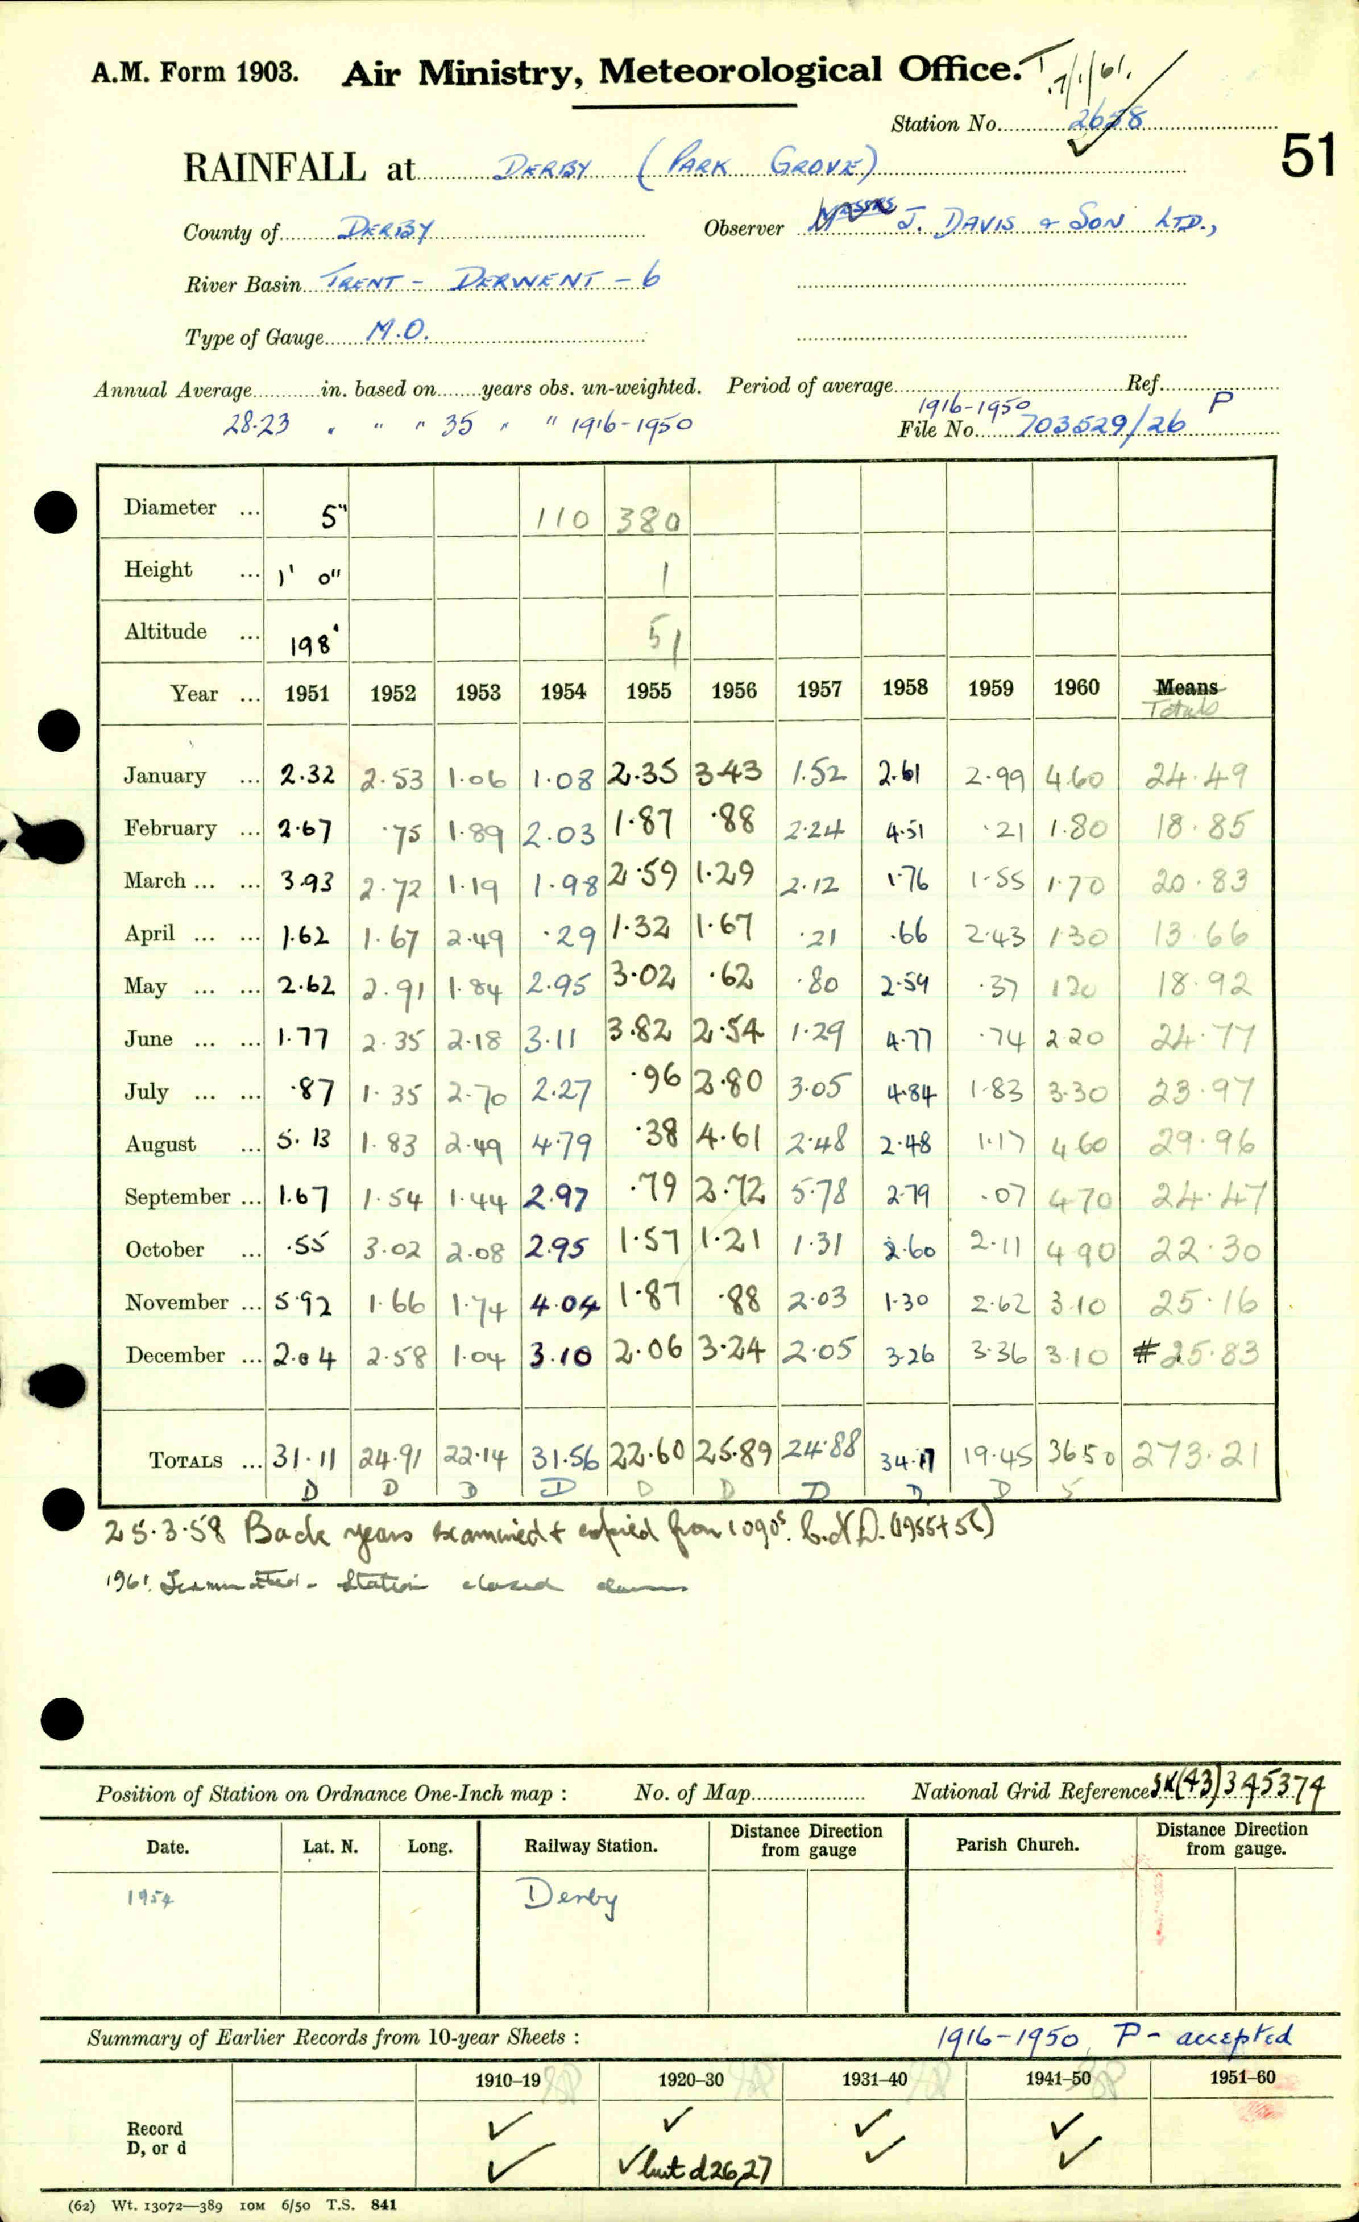 A.M. Form 1903. Air Ministry, Meteorological Office. T. 7/1/61.
Station No. 2658
51
RAINFALL at DERBY (PARK GROVE)
County of DERBY Observer MESSRS J. DAVIS & SON LTD.,
River Basin TRENT - DERWENT - 6
Type of Gauge M.O.
Annual Average in. based on years obs. un-weighted. Period of average Ref.
28.23 " " " 35 " " 1916-1950 1916-1950 P
File No. 703529/26
Diameter ... 5" 110 380
Height ... 1' 0" 1
Altitude ... 198' 51
Year ... 1951 1952 1953 1954 1955 1956 1957 1958 1959 1960 Means
Totals
January ... 2.32 2.53 1.06 1.08 2.35 3.43 1.52 2.61 2.99 4.60 24.49
February ... 2.67 .75 1.89 2.03 1.87 .88 2.24 4.51 .21 1.80 18.85
March ... ... 3.93 2.72 1.19 1.98 2.59 1.29 2.12 1.76 1.55 1.70 20.83
April ... ... 1.62 1.67 2.49 .29 1.32 1.67 .21 .66 2.43 1.30 13.66
May ... ... 2.62 2.91 1.84 2.95 3.02 .62 .80 2.59 .37 1 20 18.92
June ... ... 1.77 2.35 2.18 3.11 3.82 2.54 1.29 4.77 .74 2 20 24.77
July ... ... .87 1.35 2.70 2.27 .96 2.80 3.05 4.84 1.83 3.30 23.97
August ... 5.13 1.83 2.49 4.79 .38 4.61 2.48 2.48 1.17 4 60 29.96
September ... 1.67 1.54 1.44 2.97 .79 3.72 5.78 2.79 .07 4 70 24.47
October ... .55 3.02 2.08 2.95 1.57 1.21 1.31 2.60 2.11 4 90 22.30
November ... 5.92 1.66 1.74 4.04 1.87 .88 2.03 1.30 2.62 3 10 25.16
December ... 2.04 2.58 1.04 3.10 2.06 3.24 2.05 3.26 3.36 3.10 # 25.83
TOTALS ... 31.11 24.91 22.14 31.56 22.60 25.89 24.88 34.17 19.45 36 50 273.21
D D D D D D D D D S
25.3.58 Back years examined & copied from 1090s. (1955+56)
1961. Terminated - Station closed down
Position of Station on Ordnance One-Inch map : No. of Map National Grid Reference SK(43)345374
Date. Lat. N. Long. Railway Station. Distance from Direction gauge Parish Church. Distance from Direction gauge.
1954 Derby
Summary of Earlier Records from 10-year Sheets : 1916-1950 P - accepted
1910–19 1920–30 1931–40 1941–50 1951–60
Record ✓ ✓ ✓ ✓
D, or d ✓ ✓ but d 26,27 ✓ ✓
(62) Wt. 13072—389 10M 6/50 T.S. 841